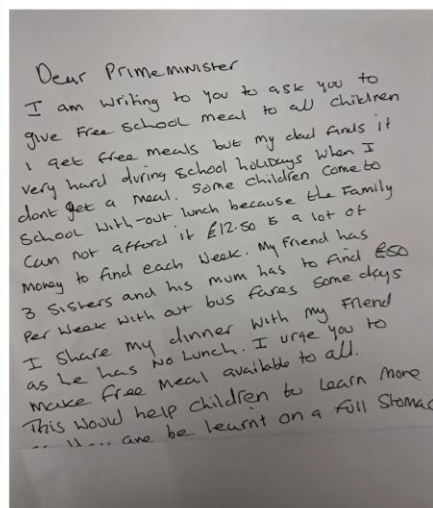 Dear Primeminister
I am writing to you to ask you to
give Free school meal to all children
I get free meals but my dad finds it
very hard during school holidays when I
dont get a meal. Some children come to
School with-out lunch because the Family
Can not afford it £12.50 is a lot of
money to find each week. My Friend has
3 sisters and his mum has to find £50
Per Week with out bus fares some days
I share my dinner with my Friend
as he has No Lunch. I urge you to
make free meal available to all.
This would help children to Learn more
are be learnt on a full Stomac